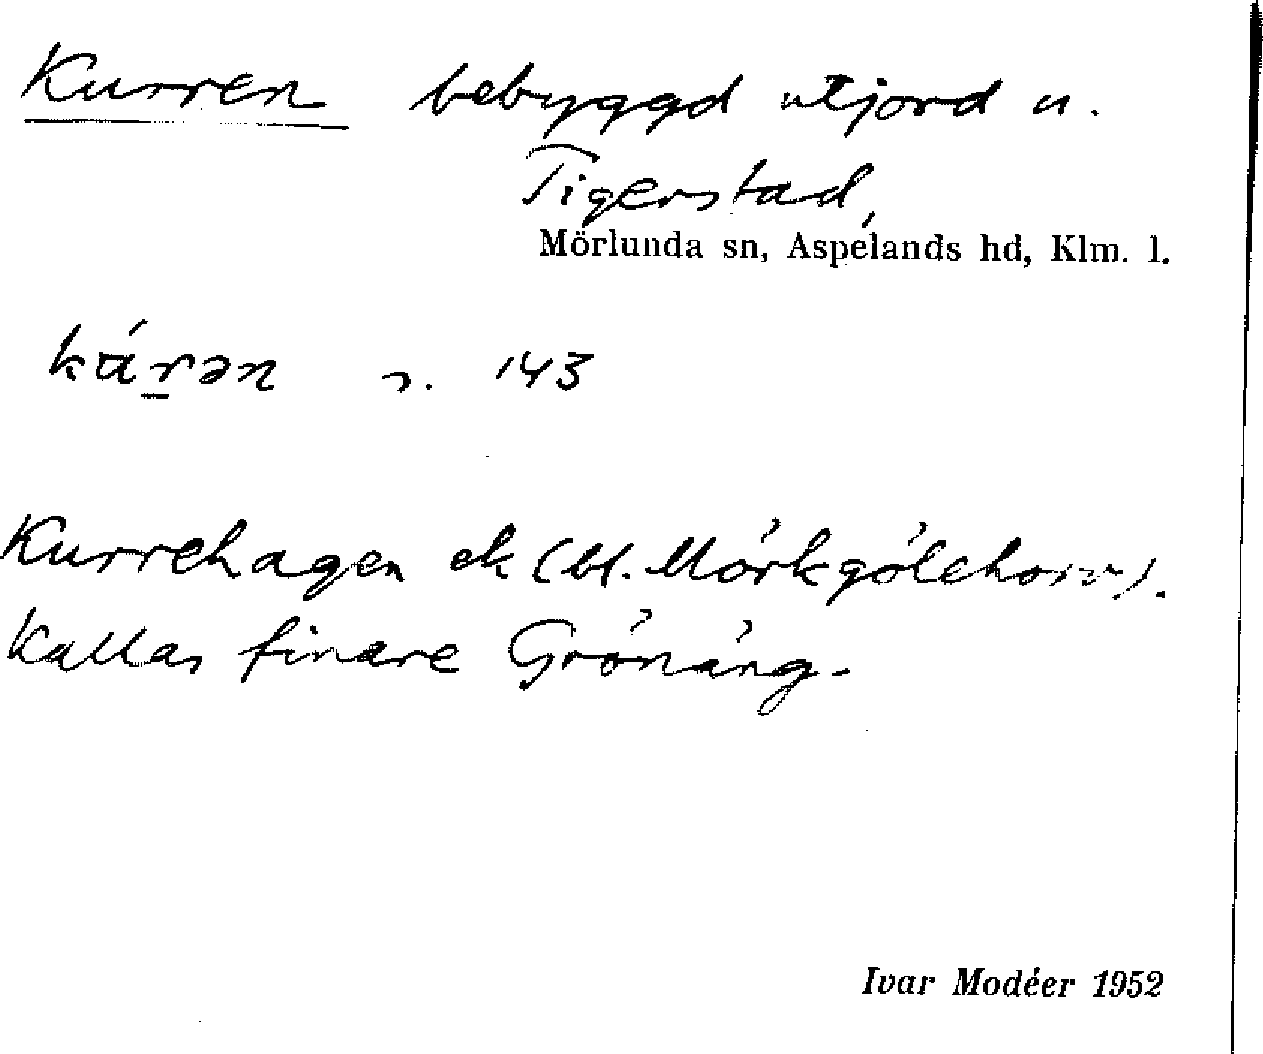 Kurren bebyggd utjord u.
Tigerstad,
Mörlunda sn, Aspelands hd, Klm. l.
s. 143
Kurrehagen ek (bl. Mörkgölehorv).
Kallas finare Grönäng.
Ivar Modéer 1952